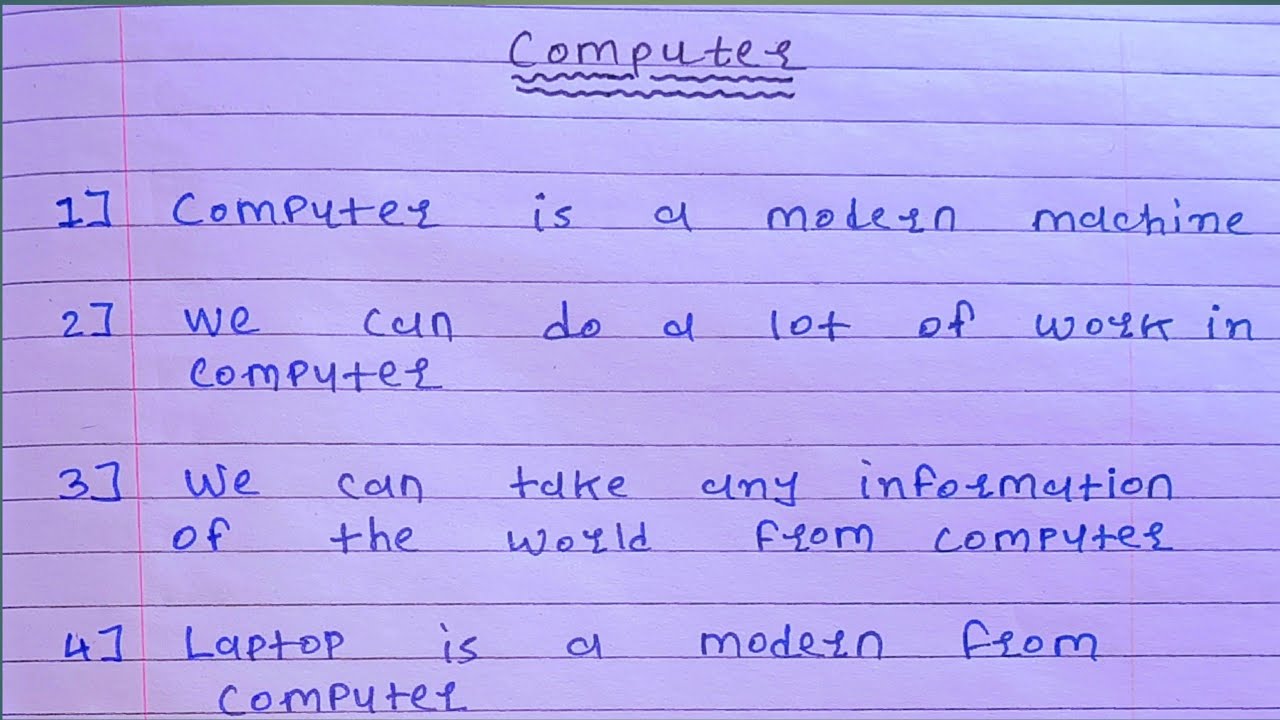 Computer
1] Computer is a modern machine
2] we can do a lot of work in
computer
3] we can take any information
of the world from computer
4] Laptop is a modern from
computer